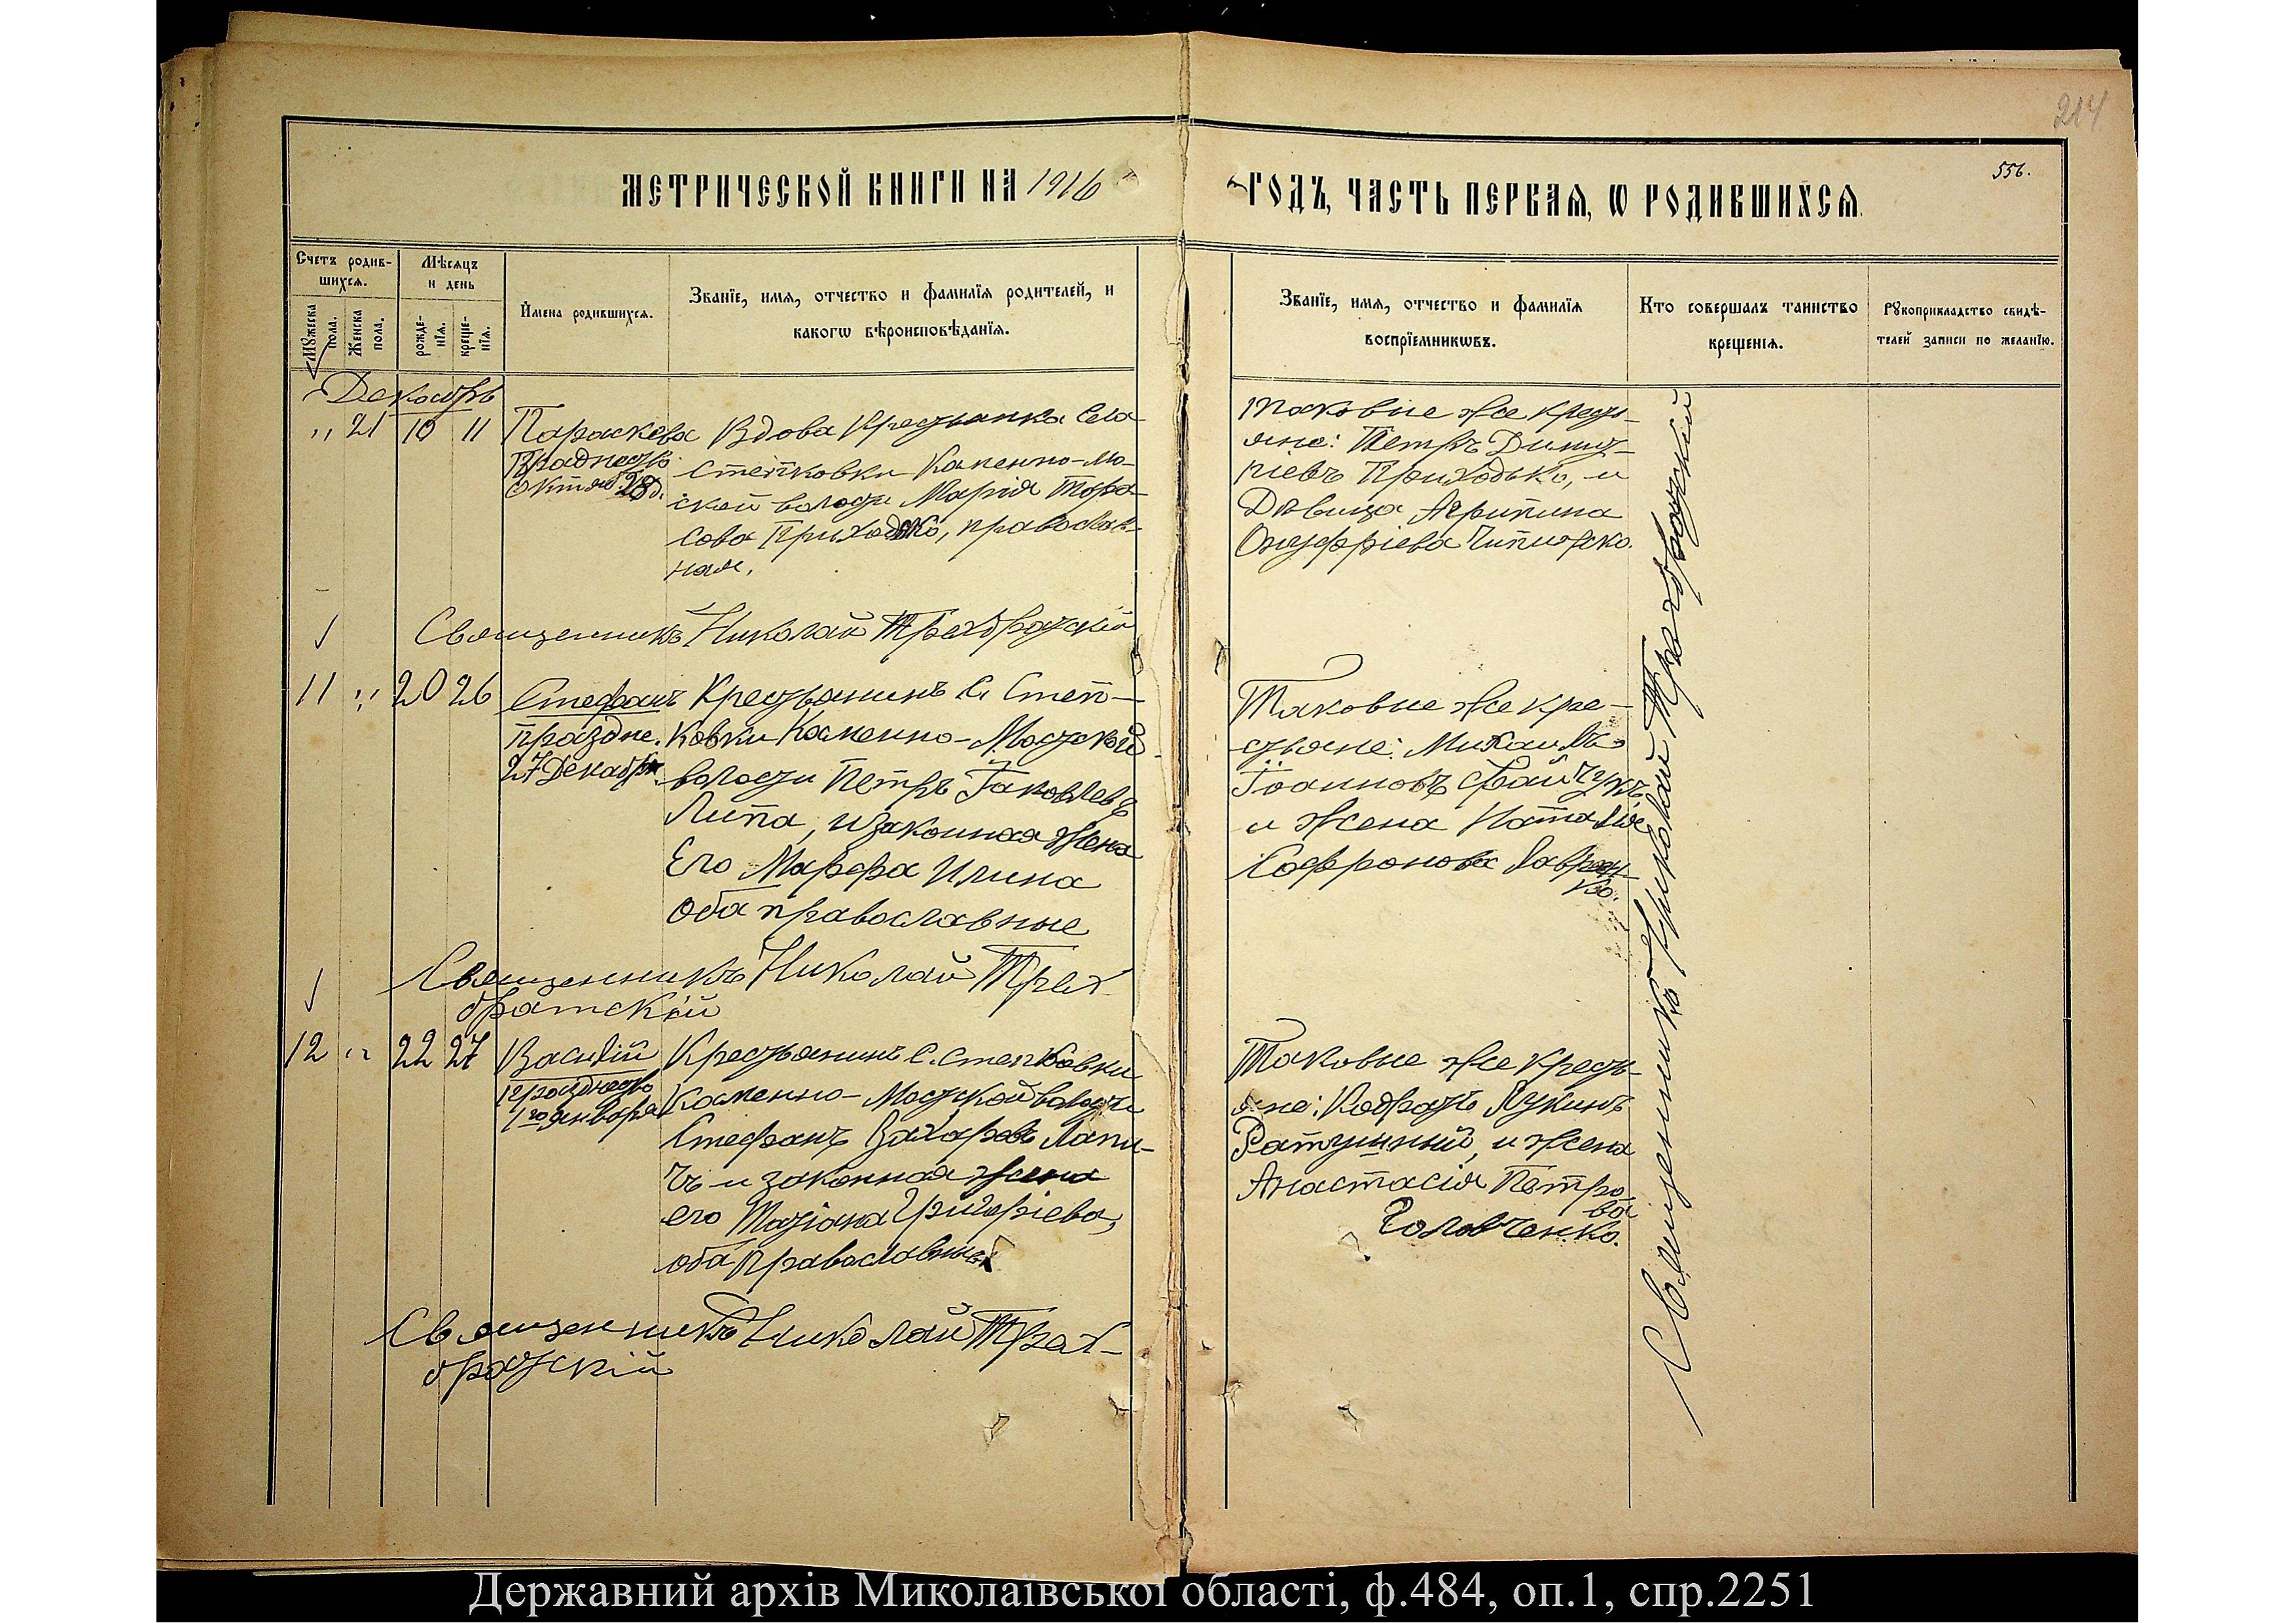 214
556.
МЕТРИЧЕСКОЙ КНИГИ НА 1916
ГОДЪ, ЧАСТЬ ПЕРВАЯ, Ѡ РОДИВШИХСЯ.
Счетъ родив-
шихся.
Мужеска
пола.
Женска
пола.
Мѣсяцъ
и день
рожде-
нія.
креще-
нія.
Имена родившихся.
Званїе, имя, отчество и фамилїя родителей, и
какогѡ вѣроисповѣданїя.
Званїе, имя, отчество и фамилїя
воспрїемникѡвъ.
Кто совершалъ таинство
крещенїя.
Рукоприкладство свидѣ-
телей записи по желанїю.
Декабрь
" 21 10 11
Параскева
Празднество
Октяб. 28 д.
Вдова Крестьянка Села
Степковки Каменно-Мо-
ской волости Марія Тара-
сова Приходько, православ-
ная.
таковые же кресть-
яне: Петръ Димит-
ріевъ Приходько, и
Дѣвица Агрипина
Онуфріева
Священникъ Николай Трехбратскій
11 " 20 26
Стефанъ
праздне.
27 Декабря
Крестьянинъ С. Степ-
ковки Каменно-Мостской
волости Петръ Іаковлевъ
Липа, и законная жена
Его Марфа Илина
Оба православные
Таковые же кре-
стьяне: Михаилъ
Іоанновъ
и жена Наталія
Софронова Лаврен-
ко.
Священникъ Николай Трех-
братскій
12 " 22 27
Василій
Празднество
1го Января
Крестьянинъ С. Степковки
Каменно-Мостской волости
Стефанъ Захаровъ Лапи-
чъ и законная жена
его Татіана Григоріева,
оба Православные
Таковые же кресть-
яне: Кодратъ Лукинъ
Ратушный, и жена
Анастасія Петро-
ва
Головченко.
Священникъ Николай Трех-
братскій
Священникъ Николай Трехбратскій
Державний архів Миколаївської області, ф.484, оп.1, спр.2251